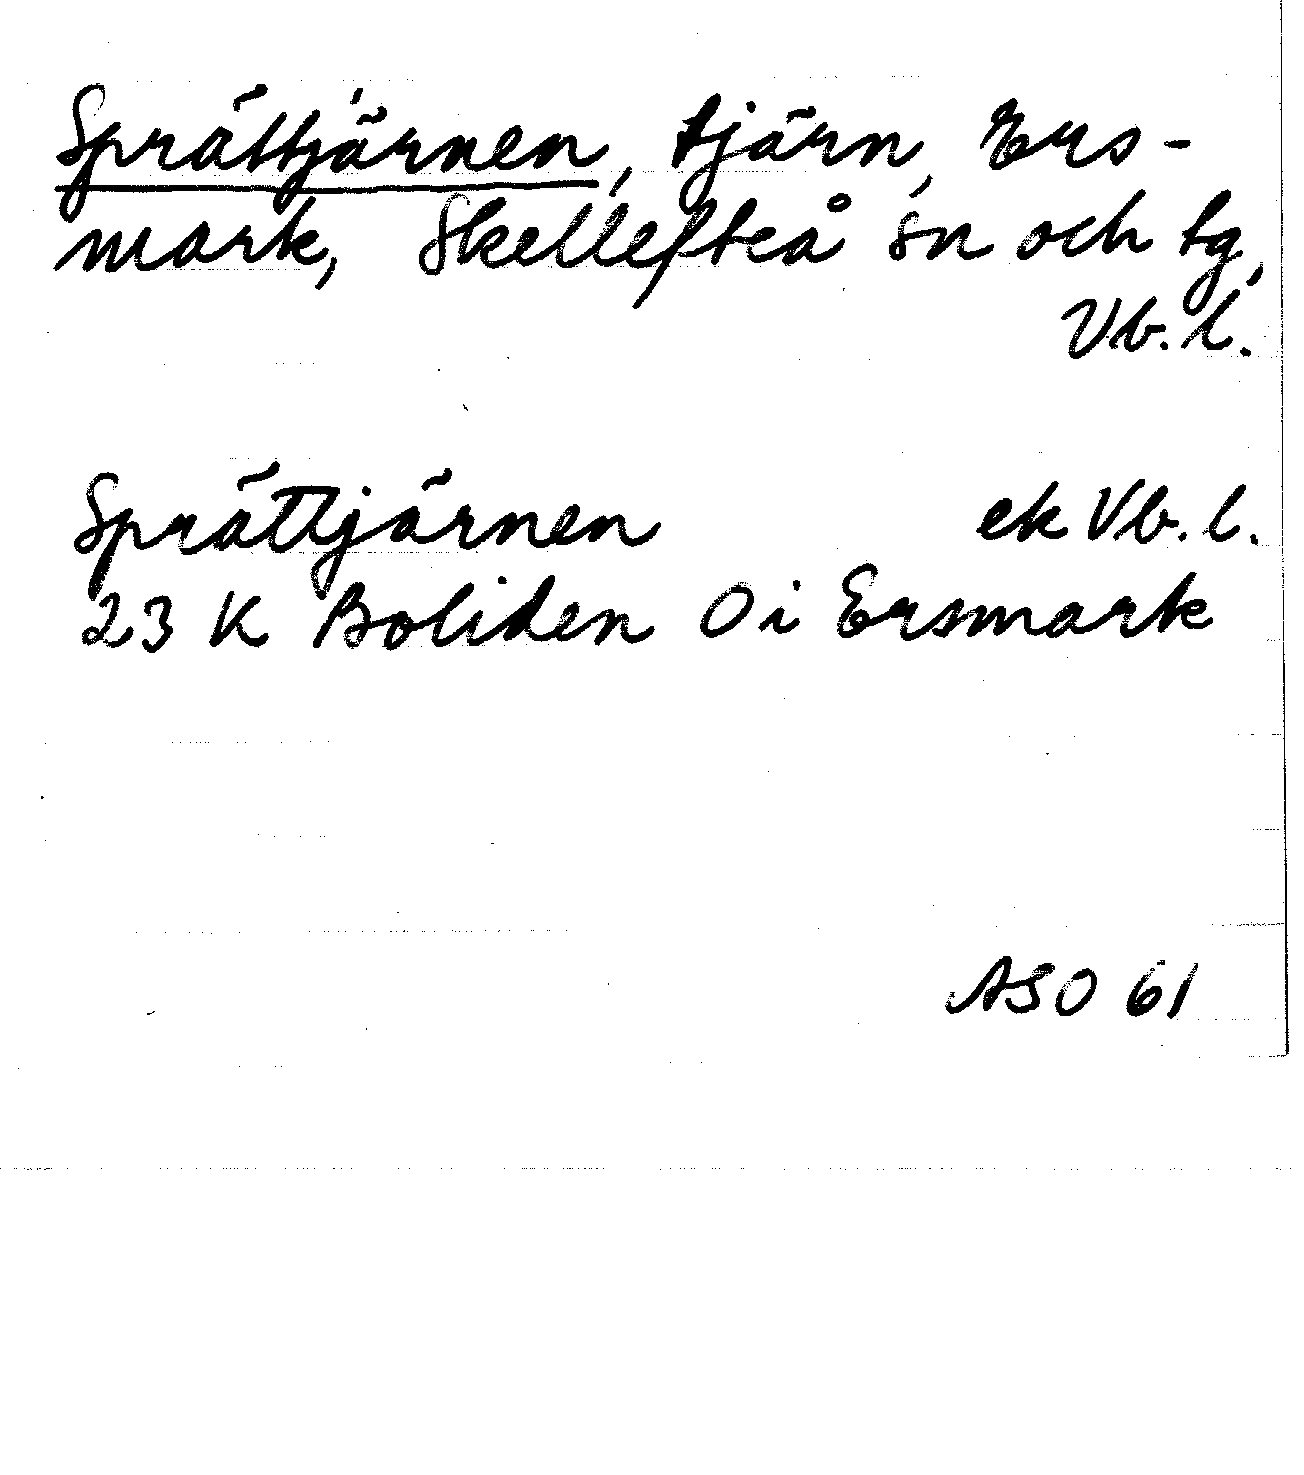 Sprättjärnen, tjärn, Ers-
mark, Skellefteå sn och tg,
Vb. l.
Sprättjärnen ek Vb. l.
23 K Boliden O i Ersmark
ASO 61